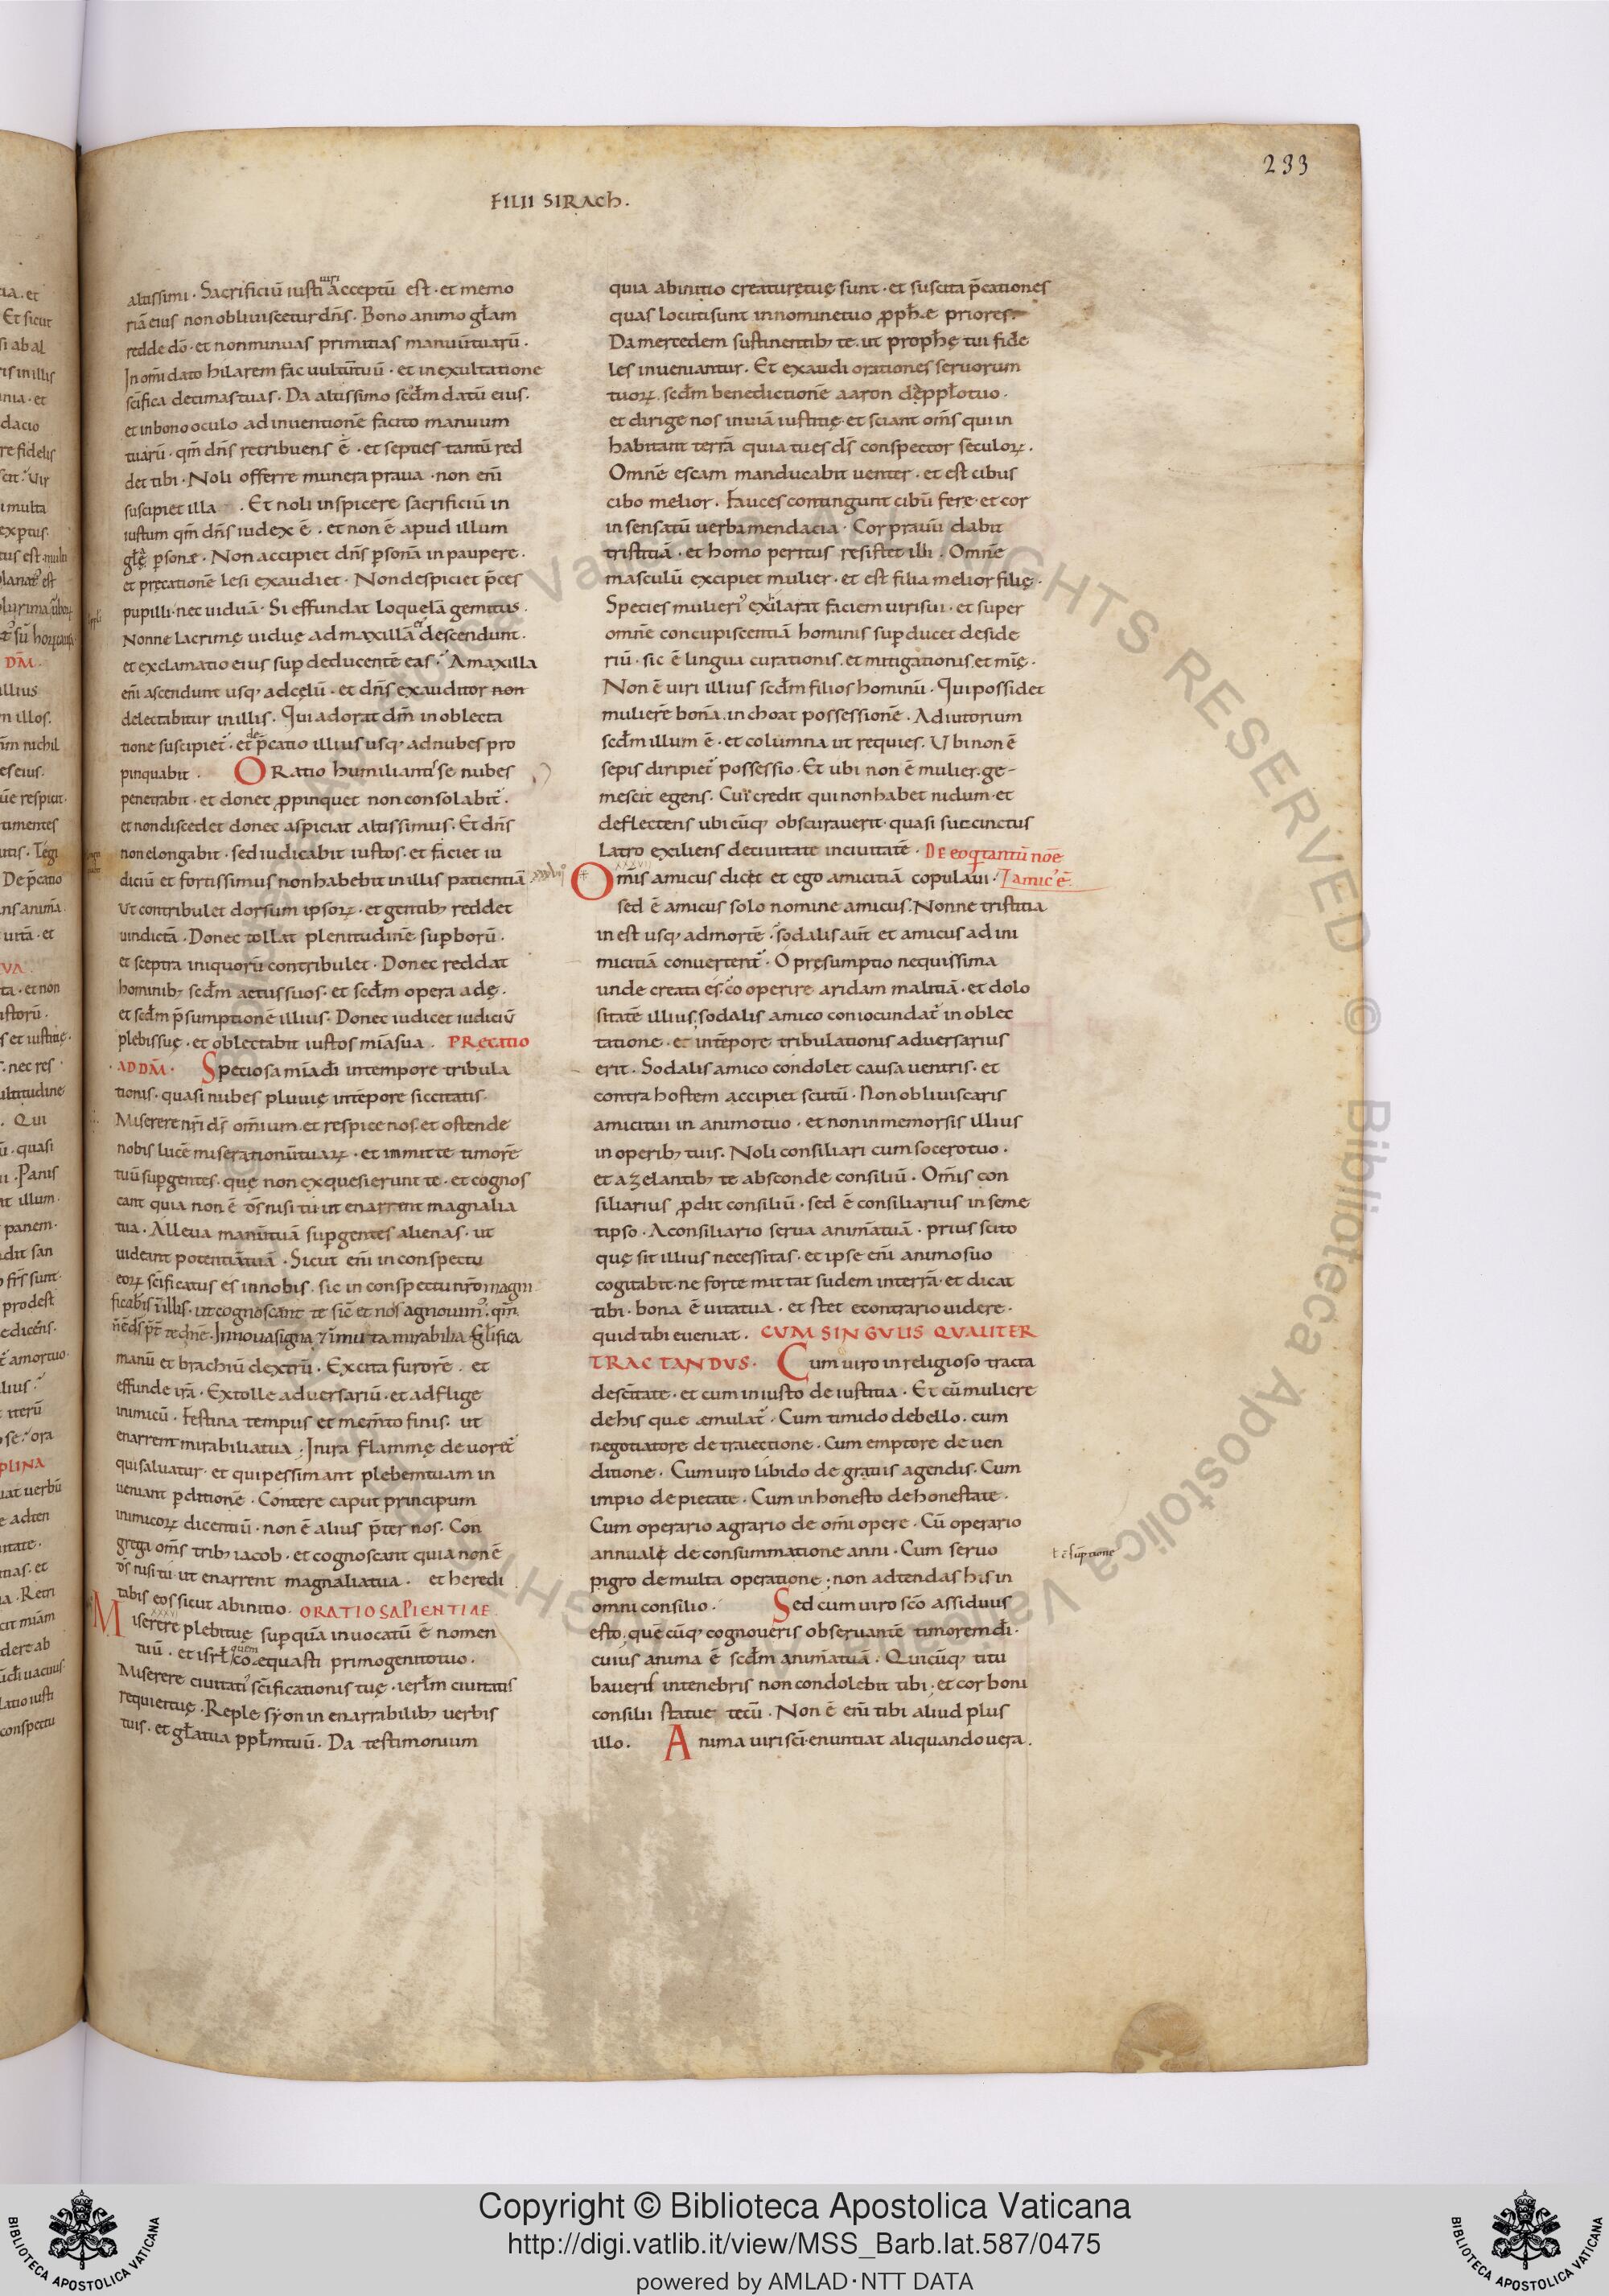 233
FILII SIRACh.
altissimi · Sacrificiū iusti uiri acceptū est · et memo
riā eius non obliuiscetur dn̄s · Bono animo gl̄am
redde dō · et non minuas primitias manuū tuarū ·
In om̄i dato hilarem fac uultū tuū · et in exultatione
sc̄ifica decimas tuas · Da altissimo scd̄m datū eius ·
et in bono oculo adinuentionē facito manuum
tuarū · qm̄ dn̄s retribuens ē · et septies tantū red
det tibi · Noli offerre munera praua · non eni̅
suscipiet illa · Et noli inspicere sacrificiū in
iustum qm̄ dn̄s iudex ē · et non ē apud illum
gl̄ę p̱sonæ · Non accipiet dn̄s p̱sonā in paupere ·
et pręcationē lesi exaudiet · Non despiciet p̄ces
pupilli · nec uiduā · Si effundat loquelā gemitus ·
Nonne lacrimę uiduę ad maxillā descendunt ·
et exclamatio eius sup̱ deducentē eas · A maxilla
eni̅ ascendunt usq; ad cęlū · et dn̄s exauditor non
delectabitur in illis · Qui adorat dm̄ in oblecta
tione suscipiet᷒ · et de p̄catio illius usq; ad nubes pro
pinquabit · ORatio humilianti᷒ se nubes
penetrabit · et donec ꝓpinquet non consolabit᷒ ·
et non discedet donec aspiciat altissimus · Et dn̄s
non elongabit · sed iudicabit iustos · et faciet iu
diciū et fortissimus non habebit in illis patientiā
Ut contribulet dorsum ipsoꝝ · et gentib; reddet
uindictā · Donec tollat plenitudinē sup̱borū ·
et sceptra iniquorū contribulet · Donec reddat
hominib; scd̄m actus suos · et scd̄m opera adę ·
et scd̄m p̄sumptionē illius · Donec iudicet iudiciū
plebis suę · et oblectabit iustos mīa sua · PRęCATIO
AD DM̄ · Speciosa mīa dī in tempore tribula
tionis · quasi nubes pluuię in tēpore siccitatis ·
Miserere nr̄i ds̄ om̄ium · et respice nos · et ostende
nobis lucē miserationū tuaꝝ · et immitte timorē
tuū sup̱ gentes · quę non exquesierunt te · et cognos
cant quia non ē ds̄ nisi tu · ut enarrent magnalia
tua · Alleua manū tuam sup̱ gentes alienas · ut
uideant potentiā tuā · Sicut eni̅ in conspectu
eoꝝ sc̄ificatus es in nobis · sic in conspectu nr̄o magni
ficaberis in illis · ut cognoscant te sic̄ et nos agnouim᷒ · qm̄
n̄ ē ds̄ p̄t te dn̄e · Innoua signa ⁊ īmuta mirabilia · Gl̄ifica
manū et brachiū dextrū · Excita furorē · et
effunde irā · Extolle aduersariū · et adflige
inimicū · Festina tempus et mem̄to finis · ut
enarrent mirabilia tua · In ira flammę deuoret᷒
qui saluatur · et qui pessimant plebem tuam in
ueniant p̱ditionē · Contere caput principum
inimicoꝝ dicentiū · non ē alius p̄ter nos · Con
grega om̄s trib; iacob · et cognoscant quia non ē
ds̄ nisi tu · ut enarrent magnalia tua · et heredi
tabis eos sicut ab initio · ORATIO SAPIENTIAE
XXXVI
Miserere plebi tuę sup̱ quā inuocatū ē nomen
tuū · et isrl̄ quem coęquasti primogenito tuo ·
Miserere ciuitati᷒ sc̄ificationis tuę · ierl̄m ciuitati᷒
requiei tuę · Reple syon inenarrabilib; uerbis
tuis · et gl̄a tua ppl̄m tuū · Da testimonium
quia ab initio creaturę tuę sunt · et suscita p̄cationes
quas locuti sunt in nomine tuo ꝓph̄e priores
Da mercedem sustinentib; te · ut proph̄ę tui fide
les inueniantur · Et exaudi orationes seruorum
tuoꝝ · scd̄m benedictionē aaron dę ppl̄o tuo ·
et dirige nos in uiā iustitię · et sciant om̄s qui in
habitant terrā quia tu es ds̄ conspector seculoꝝ ·
Omnē escam manducabit uenter · et est cibus
cibo melior · Fauces contingunt cibū fere · et cor
insensatū uerba mendacia · Cor prauū dabit
tristitiā · et homo peritus resistet illi · Omnē
masculū excipiet mulier · et est filia melior filię ·
Species mulieri᷒ exhilarat faciem uiri sui · et super
omnē concupiscentiā hominis sup̱ducet deside
riū · sic ē lingua curationis · et mitigationis · et mīę ·
Non ē uiri illius scd̄m filios hominū · Qui possidet
mulierē bonā · inchoat possessionē · Adiutorium
scd̄m illum ē · et columna ut requies · Ubi non ē
sepis diripiet᷒ possessio · Et ubi non ē mulier · ge-
mescit egens · Cui credit qui non habet nidum · et
deflectens ubicūq; obscurauerit · quasi succinctus
latro exiliens de ciuitate in ciuitatē · DE eo q̇ tantū nōe
xxxvii
Om̄is amicus dicet et ego amicitiā copulaui · amic᷒ ē
sed ē amicus solo nomine amicus · Nonne tristitia
in est usq; ad mortē · sodalis aut̄ et amicus ad ini
micitiā conuertent᷒ · O pręsumptio nequissima
unde creata es · cooperire aridam malitiā · et dolo
sitatē illius · sodalis amico coniocundat᷒ in oblec
tatione · et in tēpore tribulationis aduersarius
erit · Sodalis amico condolet causa uentris · et
contra hostem accipiet scutū · Non obliuiscaris
amici tui in animo tuo · et non inmemor sis illius
in operib; tuis · Noli consiliari cum socero tuo ·
et a zelantib; te absconde consiliū · Om̄is con
siliarius ꝓdit consiliū · sed ē consiliarius in seme
tipso · A consiliario serua animā tuā · prius scito
quę sit illius necessitas · et ipse eni̅ animo suo
cogitabit · ne forte mittat sudem in terrā · et dicat
tibi · bona ē uita tua · et stet e contrario uidere ·
quid tibi eueniat · CUM SINGULIS QUALITER
TRACTANDUS · Cum uiro inreligioso tracta
de sc̄itate · et cum iniusto de iustitia · Et cū muliere
de his quæ æmulat᷒ · Cum timido de bello · cum
negotiatore de traiectione · Cum emptore de uen
ditione · Cum uiro libido de gratiis agendis · Cum
impio de pietate · Cum inhonesto de honestate ·
Cum operario agrario de om̄i opere · Cū operario
annuale de consummatione anni · Cum seruo
pigro de multa operatione · non adtendas his in
omni consilio · Sed cum uiro sc̄o assiduus
esto · quē cūq; cognoueris obseruantē timorem dī ·
cuius anima ē scd̄m animā tuā · Quicūq; titu
bauerit in tenebris non condolebit tibi · et cor boni
consilii statue tecū · Non ē eni̅ tibi aliud plus
illo · Anima uiri sc̄i enuntiat aliquando uera ·
Copyright © Biblioteca Apostolica Vaticana
http://digi.vatlib.it/view/MSS_Barb.lat.587/0475
powered by AMLAD·NTT DATA
BIBLIOTECA APOSTOLICA VATICANA
BIBLIOTECA APOSTOLICA VATICANA